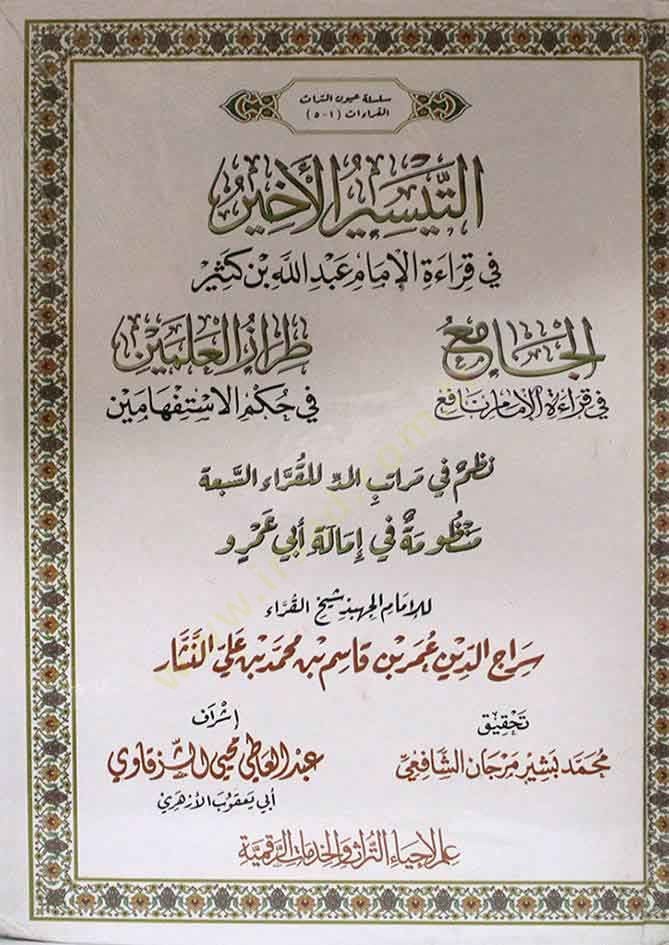 سلسلة عيون التراث
القراءات (١-٥)
التَّيْسِيرُ الأَخِيرُ
في قِرَاءَةِ الإِمَامِ عَبْدِ اللهِ بْنِ كَثِيرٍ
الجَامِعُ
في قِرَاءَةِ الإِمَامِ نَافِعٍ
طِرَازُ العَلَمَيْنِ
في حُكْمِ الاسْتِفْهَامَيْنِ
نظمٌ في مراتبِ المدِّ للقُرَّاءِ السَّبعة
مَنْظُومَةٌ في إِمَالَةِ أَبِي عَمْرٍو
للإمام الجهبذ شيخ القُرَّاء
سِرَاجِ الدِّينِ عُمَرَ بْنِ قَاسِمِ بْنِ مُحَمَّدِ بْنِ عَلِيٍّ النَّشَّارِ
تحقيق
مُحَمَّد بَشِير مَرْجَان الشَّافِعِيّ
إشراف
عَبْد العَاطِي مُحْيِي الشَّرْقَاوِي
أبي يعقوب الأزهري
علم لإحياء التراث والخدمات الرقمية